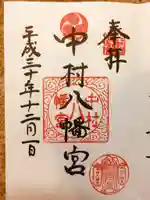 奉拝
中村八幡宮
中村
八幡宮
平成三十年十二月一日